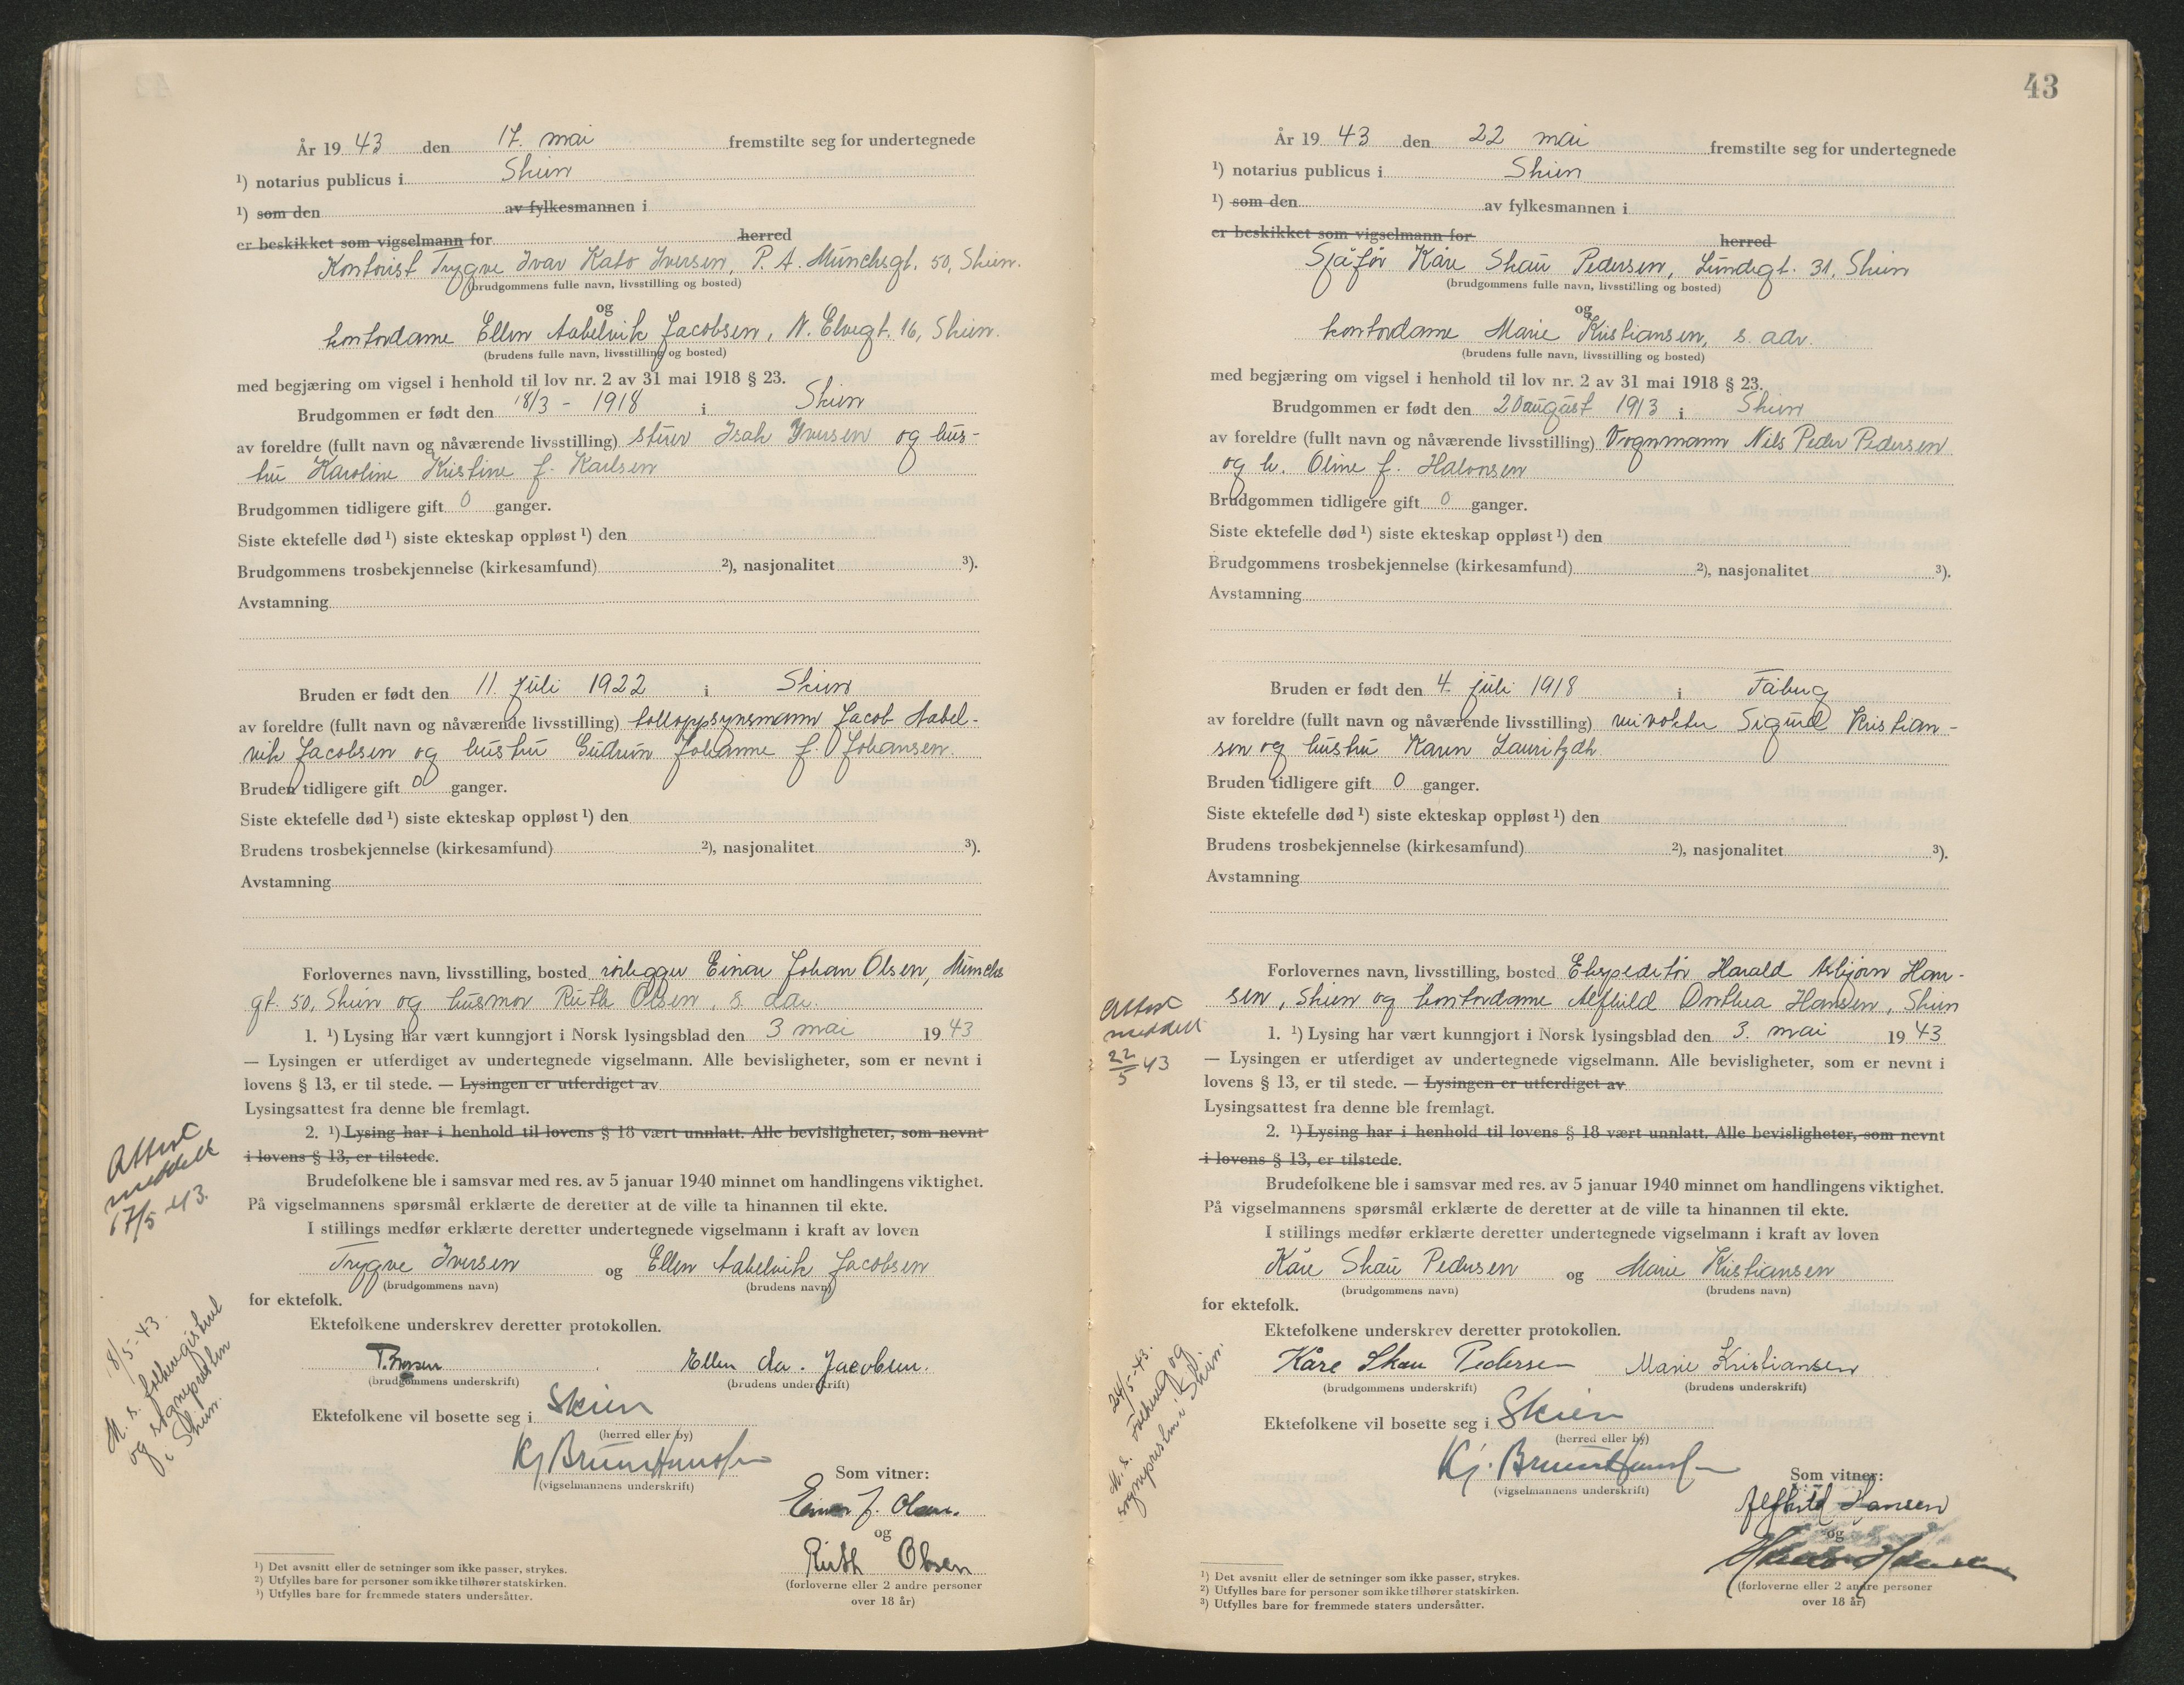 År 19 43 den 17. mai fremstilte seg for undertegnede
¹) notarius publicus i Skien
¹) som den av fylkesmannen i
er beskikket som vigselmann for herred
Kontorist Trygve Ivar Kato Iversen, P. A. Munchsgt. 50, Skien.
(brudgommens fulle navn, livsstilling og bosted)
og
kontordame Ellen Aabelvik Jacobsen, N. Elvegt. 16, Skien.
(brudens fulle navn, livsstilling og bosted)
med begjæring om vigsel i henhold til lov nr. 2 av 31 mai 1918 § 23.
Brudgommen er født den 18/3 - 1918 i Skien
av foreldre (fullt navn og nåværende livsstilling) stuer Isak Iversen og hus-
tru Karoline Kristine f. Karlsen
Brudgommen tidligere gift 0 ganger.
Siste ektefelle død ¹) siste ekteskap oppløst ¹) den
Brudgommens trosbekjennelse (kirkesamfund) ²), nasjonalitet ³).
Avstamning
Bruden er født den 11. juli 1922 i Skien
av foreldre (fullt navn og nåværende livsstilling) tolloppsynsmann Jacob Aabel-
vik Jacobsen og hustru Gudrun Johanne f. Johansen.
Bruden tidligere gift 0 ganger.
Siste ektefelle død ¹) siste ekteskap oppløst ¹) den
Brudens trosbekjennelse (kirkesamfund) ²), nasjonalitet ³).
Avstamning
Forlovernes navn, livsstilling, bosted rørlegger Einar Johan Olsen, Munchs
gt. 50, Skien og husmor Ruth Olsen, s. adr.
1. ¹) Lysing har vært kunngjort i Norsk lysingsblad den 3 mai 19 43
— Lysingen er utferdiget av undertegnede vigselmann. Alle bevisligheter, som er nevnt i
lovens § 13, er til stede. — Lysingen er utferdiget av
Lysingsattest fra denne ble fremlagt.
2. ¹) Lysing har i henhold til lovens § 18 vært unnlatt. Alle bevisligheter, som nevnt
i lovens § 13, er tilstede.
Brudefolkene ble i samsvar med res. av 5 januar 1940 minnet om handlingens viktighet.
På vigselmannens spørsmål erklærte de deretter at de ville ta hinannen til ekte.
I stillings medfør erklærte deretter undertegnede vigselmann i kraft av loven
Trygve Iversen og Ellen Aabelvik Jacobsen
(brudgommens navn) (brudens navn)
for ektefolk.
Ektefolkene underskrev deretter protokollen.
T. Iversen Ellen Aa. Jacobsen.
(brudgommens underskrift) (brudens underskrift)
Ektefolkene vil bosette seg i Skien
(herred eller by)
Kj. Bruun Hansen
(vigselmannens underskrift)
Som vitner:
Einar J. Olsen.
og
Ruth Olsen
(forloverne eller 2 andre personer
over 18 år)
¹) Det avsnitt eller de setninger som ikke passer, strykes.
²) Utfylles bare for personer som ikke tilhører statskirken.
³) Utfylles bare for fremmede staters undersåtter.
Attest
meddelt
17/5 43.
18/5-43.
M. s. folkeregisteret
og sognepresten
i Skien.
43
År 19 43 den 22 mai fremstilte seg for undertegnede
¹) notarius publicus i Skien
¹) som den av fylkesmannen i
er beskikket som vigselmann for herred
Sjåfør Kåre Skau Pedersen, Lundegt. 31, Skien
(brudgommens fulle navn, livsstilling og bosted)
og
kontordame Marie Kristiansen, s. adr.
(brudens fulle navn, livsstilling og bosted)
med begjæring om vigsel i henhold til lov nr. 2 av 31 mai 1918 § 23.
Brudgommen er født den 20 august 1913 i Skien
av foreldre (fullt navn og nåværende livsstilling) Vognmann Nils Peder Pedersen
og h. Oline f. Halvorsen
Brudgommen tidligere gift 0 ganger.
Siste ektefelle død ¹) siste ekteskap oppløst ¹) den
Brudgommens trosbekjennelse (kirkesamfund) ²), nasjonalitet ³).
Avstamning
Bruden er født den 4. juli 1918 i Fåberg
av foreldre (fullt navn og nåværende livsstilling) veivokter Sigurd Kristian-
sen og hustru Karen
Bruden tidligere gift 0 ganger.
Siste ektefelle død ¹) siste ekteskap oppløst ¹) den
Brudens trosbekjennelse (kirkesamfund) ²), nasjonalitet ³).
Avstamning
Forlovernes navn, livsstilling, bosted Ekspeditør Harald Asbjørn Han-
sen, Skien og kontordame Alfhild Dorthea Hansen, Skien
1. ¹) Lysing har vært kunngjort i Norsk lysingsblad den 3. mai 19 43
— Lysingen er utferdiget av undertegnede vigselmann. Alle bevisligheter, som er nevnt i
lovens § 13, er til stede. — Lysingen er utferdiget av
Lysingsattest fra denne ble fremlagt.
2. ¹) Lysing har i henhold til lovens § 18 vært unnlatt. Alle bevisligheter, som nevnt
i lovens § 13, er tilstede.
Brudefolkene ble i samsvar med res. av 5 januar 1940 minnet om handlingens viktighet.
På vigselmannens spørsmål erklærte de deretter at de ville ta hinannen til ekte.
I stillings medfør erklærte deretter undertegnede vigselmann i kraft av loven
Kåre Skau Pedersen og Marie Kristiansen
(brudgommens navn) (brudens navn)
for ektefolk.
Ektefolkene underskrev deretter protokollen.
Kåre Skau Pedersen Marie Kristiansen
(brudgommens underskrift) (brudens underskrift)
Ektefolkene vil bosette seg i Skien
(herred eller by)
Kj. Bruun Hansen
(vigselmannens underskrift)
Som vitner:
Alfhild Hansen
og
Harald Hansen
(forloverne eller 2 andre personer
over 18 år)
¹) Det avsnitt eller de setninger som ikke passer, strykes.
²) Utfylles bare for personer som ikke tilhører statskirken.
³) Utfylles bare for fremmede staters undersåtter.
Attest
meddelt
22/5 43
24/5-43.
M. s. folkereg og
sognepresten i Skien.